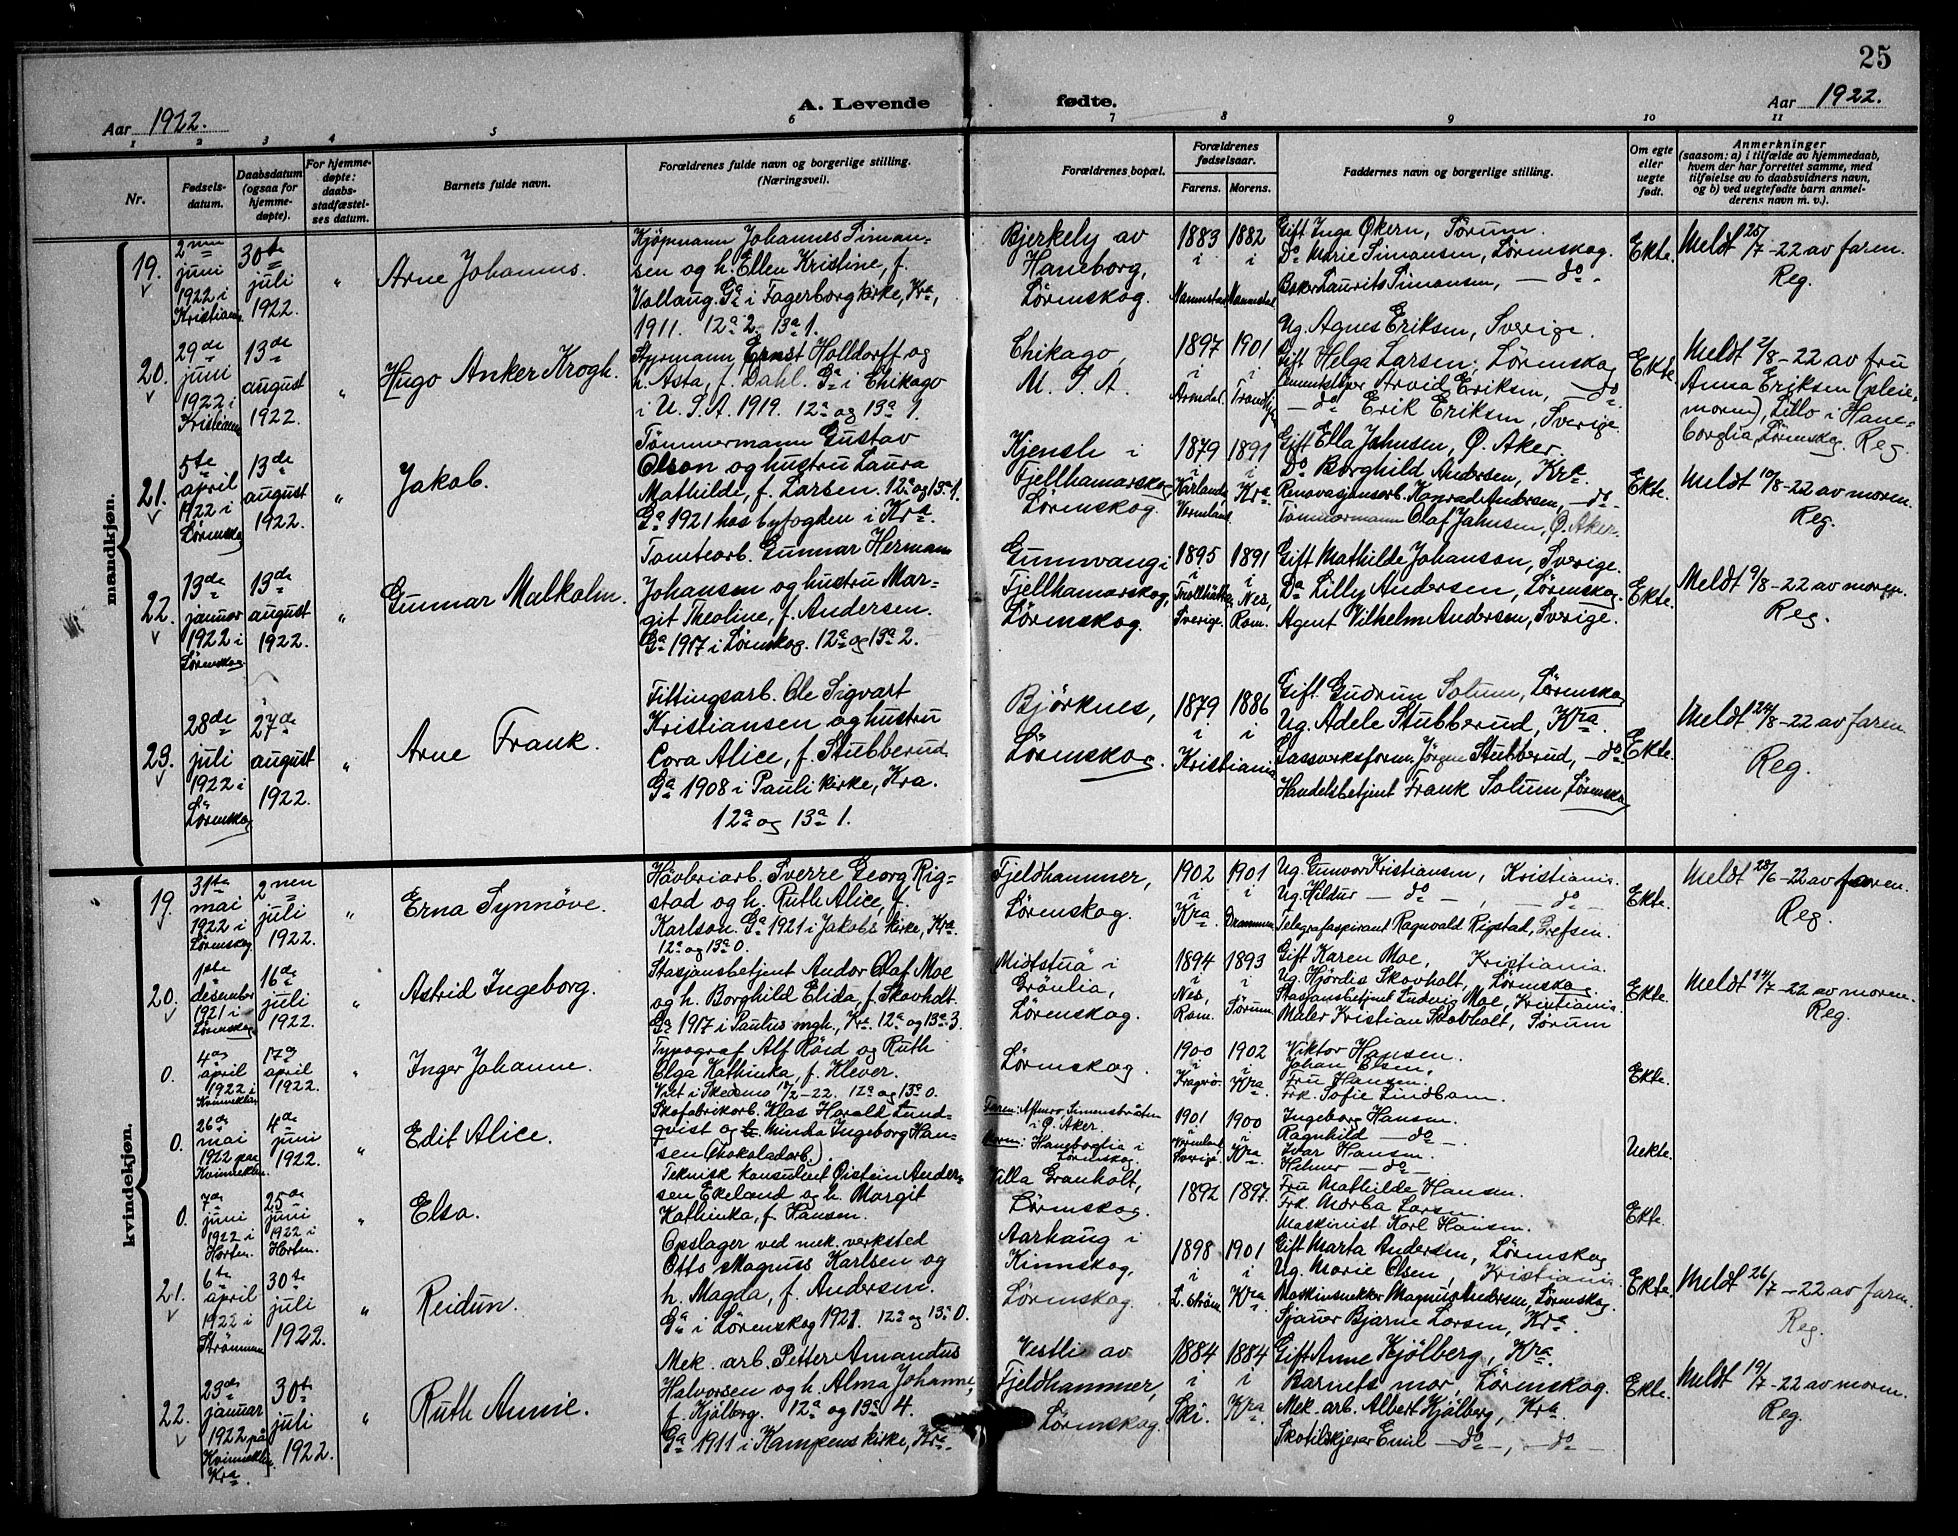 25
Aar 1922.
A. Levende fødte.
Aar 1922.
1 2 3 4 5 6 7 8 9 10 11
Nr.
Fødsels-
datum.
Daabsdatum
(ogsaa for
hjemme-
døpte).
For hjemme-
døpte:
daabs-
stadfæstel-
ses datum.
Barnets fulde navn.
Forældrenes fulde navn og borgerlige stilling.
(Næringsvei).
Forældrenes bopæl.
Forældrenes
fødselsaar.
Farens. Morens.
Faddernes navn og borgerlige stilling.
Om egte
eller
uegte
født.
Anmerkninger
(saasom: a) i tilfælde av hjemmedaab,
hvem der har forrettet samme, med
tilføielse av to daabsvidners navn,
og b) ved uegtefødte barn anmel-
derens navn m. v.).
mandkjøn.
19.
2nen
juni
1922 i
Kristiania
30te
juli
1922.
"
Arne Johannes.
Kjøpmann Johannes Siman-
sen og h. Ellen Kristine, f.
Vallaug. Ga i Fagerborg kirke, Kra,
1911. 12a 2. 13a 1.
Bjerkely av
Haneborg,
Lørenskog.
1883 i
Nannestad
1882 i
Nannestad
Gift Inga Økern, Sørum.
Do Marie Simansen, Lørenskog.
Baker Laurits Simansen, — do -
Ekte.
Meldt 25/7 -22 av faren.
Reg.
20.
29de
juni
1922 i
Kristiania
13de
august
1922.
"
Hugo Anker Krogh.
Styrmann Ernst Holldorff og
h. Asta, f. Dahl. Ga i Chikago
i U. S. A. 1919. 12a og 13a 1.
Chikago,
U. S. A.
1897 i
Arendal.
1901 i
Trondhjem
Ug. Agnes Eriksen, Sverige.
Gift Helga Larsen, Lørenskog
Arvid Eriksen, — do
— do Erik Eriksen, Sverige.
Ekte.
Meldt 2/8 -22 av fru
Anna Eriksen (pleie-
moren), Lillo i Hane-
borglia, Lørenskog. Reg.
21.
5te
april
1922 i
Lørenskog
13de
august
1922.
"
Jakob.
Tømmermann Gustav
Olson og hustru Laura
Mathilde, f. Larsen. 12a og 13a 1.
Ga 1921 hos byfogden i Kra.
Kjensli i
Fjellhamarskog
Lørenskog.
1879 i
Vermland.
1891 i
Kra
Gift Ella Jahnsen, Ø. Aker.
Do Borghild Andersen, Kra.
Renovasjonsarb. Konrad Andersen, — do -
Tømmermann Olaf Jahnsen, Ø. Aker.
Ekte.
Meldt 10/8 -22 av moren.
Reg.
22.
13de
januar
1922 i
Lørenskog.
13de
august
1922.
"
Gunnar Malkolm.
Tomtearb. Gunnar Herman
Johansen og hustru Mar-
git Theoline, f. Andersen.
Ga 1917 i Lørenskog. 12a og 13a 2.
Gunnvang i
Fjellhamarskog,
Lørenskog.
1895 i
Trollhättan
Sverige.
1891 i
Nes,
Rom.
Gift Mathilde Johanson, Sverige.
Do Lilly Andersen, Lørenskog.
Agent Vilhelm Andersen, Sverige.
Ekte.
Meldt 9/8 -22 av moren.
Reg.
23.
28de
juli
1922 i
Lørenskog
27de
august
1922.
"
Arne Frank.
Fittingsarb. Ole Sigvart
Kristiansen og hustru
Cora Alice, f. Stubberud
Ga 1908 i Pauli kirke, Kra.
12a og 13a 1.
Bjørknes,
Lørenskog.
1879 i
1886 i
Kristiania
Gift Gudrun Solum, Lørenskog
Ug. Adele Stubberud, Kra.
Gassverksform. Jørgen Stubberud, — do
Handelsbetjent Frank Solum, Lørenskog
Ekte.
Meldt 24/8 -22 av faren.
Reg.
kvindekjøn.
19.
31te
mai
1922 i
Lørenskog
2nen
juli
1922.
"
Erna Synnöve.
Sverre Georg Rig-
stad og h. Ruth Alice, f.
Karlson. Ga 1921 i Jakobs kirke, Kra.
12a og 13a 0.
Fjeldhammer,
Lørenskog.
1902 i
Kra
1901 i
Drammen
Ug. Gunvor Kristiansen, Kristiania.
Ug. Hildur — do —, — do —
Telegrafaspirant Ragnvald Rigstad, Grefsen.
Ekte.
Meldt 28/6 -22 av faren.
Reg.
20.
1ste
desember
1921 i
Lørenskog
16de
juli
1922.
"
Astrid Ingeborg.
Stasjonsbetjent Andor Olaf Moe
og h. Borghild Elida, f. Skovholt.
Ga 1917 i Paulus mgh., Kra. 12a og 13a 3.
Midtstua i
Grönlia,
Lørenskog.
1894 i
Nes,
Rom.
1893 i
Sørum
Gift Karen Moe, Kristiania.
Ug. Hjördis Skovholt, Lørenskog.
Stasjonsbetjent Ludvig Moe, Kristiania.
Maler Kristian Skovholt, Sørum
Ekte.
Meldt 14/7 -22 av moren.
Reg.
0.
4de
april
1922 i
Kvinneklin.
17de
april
1922.
"
Inger Johanne.
Typograf Alf Röid og Ruth
Olga Kathinka, f. Klever.
Viet i Skedsmo 18/2 -22. 12a og 13a 0.
Lørenskog.
1900 i
Kragerø
1902 i
Kra
Viktor Hansen.
Johan Olsen,
Fru Hansen.
Frk. Sofie Lindbom.
Ekte.
0.
26de
mai
1922 paa
Kvinneklin.
4de
juni
1922.
"
Edit Alice.
Skofabrikarb. Klas Harald Lund-
qvist og h. Minda Ingeborg Han-
sen (Chokoladarb.).
Faren: Simensbråten
i Ø. Aker.
Moren: Haneborglia i
Lørenskog.
1901 i
Vermland,
Sverige.
1900 i
Kra.
Ingeborg Hansen.
Ragnhild — do —.
Ivar Hansen.
Helmer — do —
Uekte.
0.
7de
juni
1922 i
Horten.
25de
juni
1922 i
Horten.
"
Elsa.
Teknisk konsulent Øistein Ander-
sen Ekeland og h. Margit
Kathinka, f. Hansen.
Villa Granholt,
Lørenskog.
1892
1897.
Fru Mathilde Hansen.
Frk. Larsen.
Maskinist Karl Hansen.
Ekte.
21.
6te
april
1922 i
Strømmen
30te
juli
1922.
"
Reidun.
Opslager ved mek. verksted
Otto Magnus Karlsen og
h. Magda, f. Andersen.
Ga i Lørenskog 1921. 12a og 13a 0.
Aarhaug i
Kinnskog,
Lørenskog
1898 i
L. Strøm.
1901 i
Kra.
Gift Marta Andersen, Lørenskog
Ug. Marie Olsen, Kristiania.
Magnus Andersen, Lørenskog
Sjauer Bjarne Larsen, Kra.
Ekte.
Meldt 26/7 -22 av faren.
Reg.
22.
23de
januar
1922 på
Kvinneklin.
Kra
30te
juli
1922.
"
Ruth Annie.
Mek. arb. Petter Amandus
Halvorsen og h. Alma Johanne,
f. Kjølberg. 12a og 13a 4.
Ga 1911 i Kampens kirke, Kra.
Vestli av
Fjeldhammer,
Lørenskog.
1884 i
Ski.
1884 i
Kra.
Gift Anne Kjølberg, Kra.
Barnets mor, Lørenskog.
Mek. arb. Albert Kjølberg, Kra.
Skotilskjærer Emil — do —, — do —
Ekte.
Meldt 19/7 -22 av moren.
Reg.